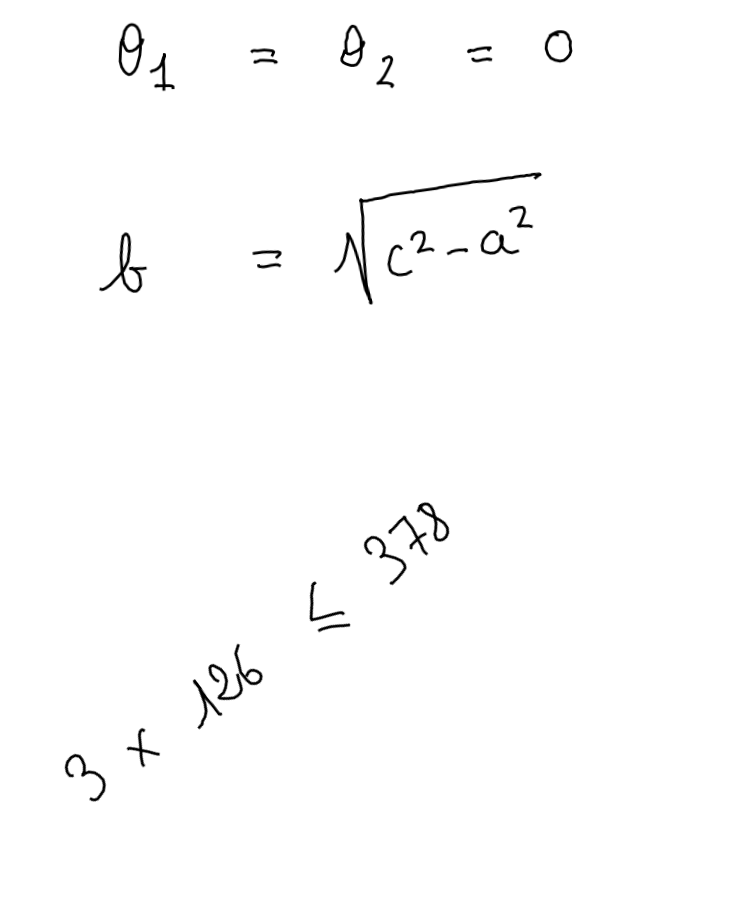 θ₁ = θ₂ = 0
b = √(c² - a²)
3 × 126 ≤ 378